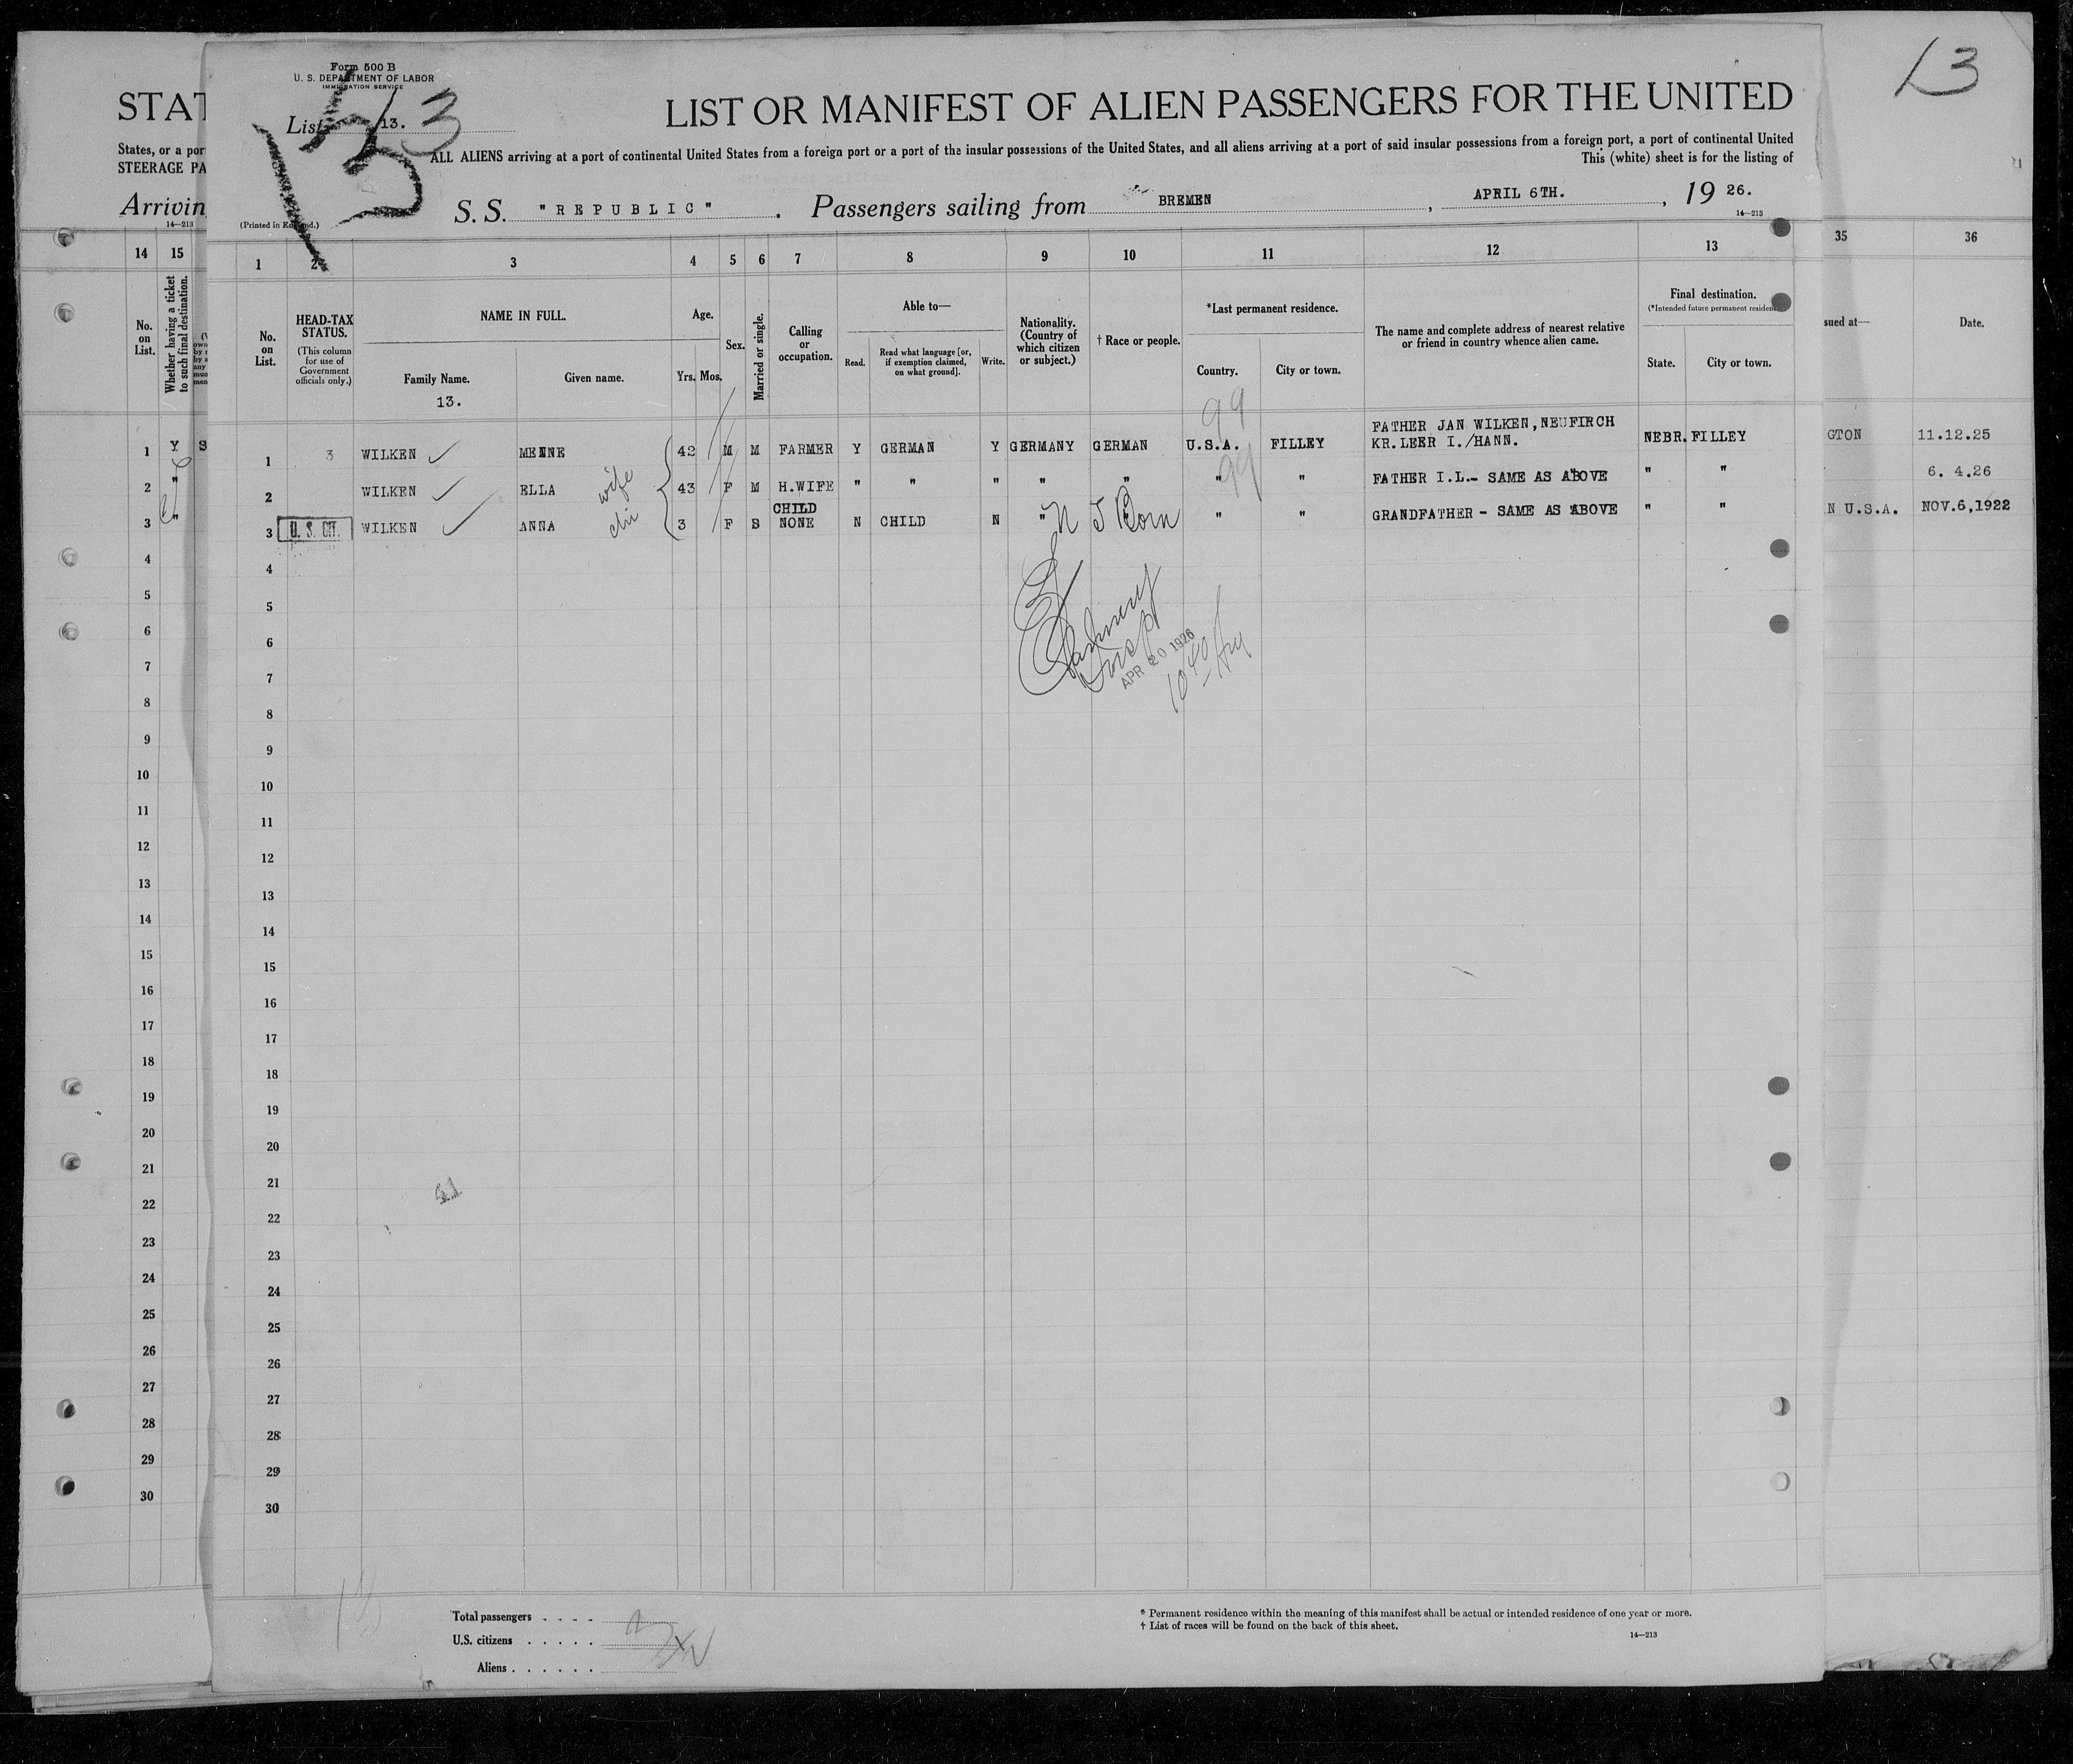 Form 500 B
U. S. DEPARTMENT OF LABOR
IMMIGRATION SERVICE
List 13.
13
3
13
STAT
LIST OR MANIFEST OF ALIEN PASSENGERS FOR THE UNITED
States, or a por
STEERAGE PA
ALL ALIENS arriving at a port of continental United States from a foreign port or a port of the insular possessions of the United States, and all aliens arriving at a port of said insular possessions from a foreign port, a port of continental United
This (white) sheet is for the listing of
Arrivin
S. S. "REPUBLIC" . Passengers sailing from BREMEN , APRIL 6TH. , 19 26.
14—213
(Printed in England.)
14—213
14 15 1 2 3 4 5 6 7 8 9 10 11 12 13 35 36
No. on List.
Whether having a ticket to such final destination.
No. on List.
HEAD-TAX STATUS.
(This column for use of Government officials only.)
NAME IN FULL.
Family Name.
13.
Given name.
Age.
Yrs. Mos.
Sex.
Married or single.
Calling or occupation.
Able to—
Read.
Read what language [or, if exemption claimed, on what ground].
Write.
Nationality. (Country of which citizen or subject.)
† Race or people.
*Last permanent residence.
Country.
City or town.
The name and complete address of nearest relative or friend in country whence alien came.
Final destination.
(*Intended future permanent residence)
State.
City or town.
sued at—
Date.
99
FATHER JAN WILKEN,NEUFIRCH
1 Y S 1 3 WILKEN MENNE 42 M M FARMER Y GERMAN Y GERMANY GERMAN U.S.A. FILLEY KR.LEER I./HANN. NEBR. FILLEY GTON 11.12.25
99
2 " 2 WILKEN ELLA wife 43 F M H.WIFE " " " " " " " FATHER I.L.- SAME AS ABOVE " " 6. 4.26
CHILD
3 " 3 U. S. CIT. WILKEN ANNA 3 F S NONE N CHILD N " N J Born " " GRANDFATHER - SAME AS ABOVE " " N U.S.A. NOV.6,1922
4 4
5 5
6 6
7 7
APR 20 1926
8 8
9 9
10 10
11 11
12 12
13 13
14 14
15 15
16 16
17 17
18 18
19 19
20 20
21 21
22 22
23 23
24 24
25 25
26 26
27 27
28 28
29 29
30 30
Total passengers
U.S. citizens
Aliens
* Permanent residence within the meaning of this manifest shall be actual or intended residence of one year or more.
† List of races will be found on the back of this sheet.
14—213